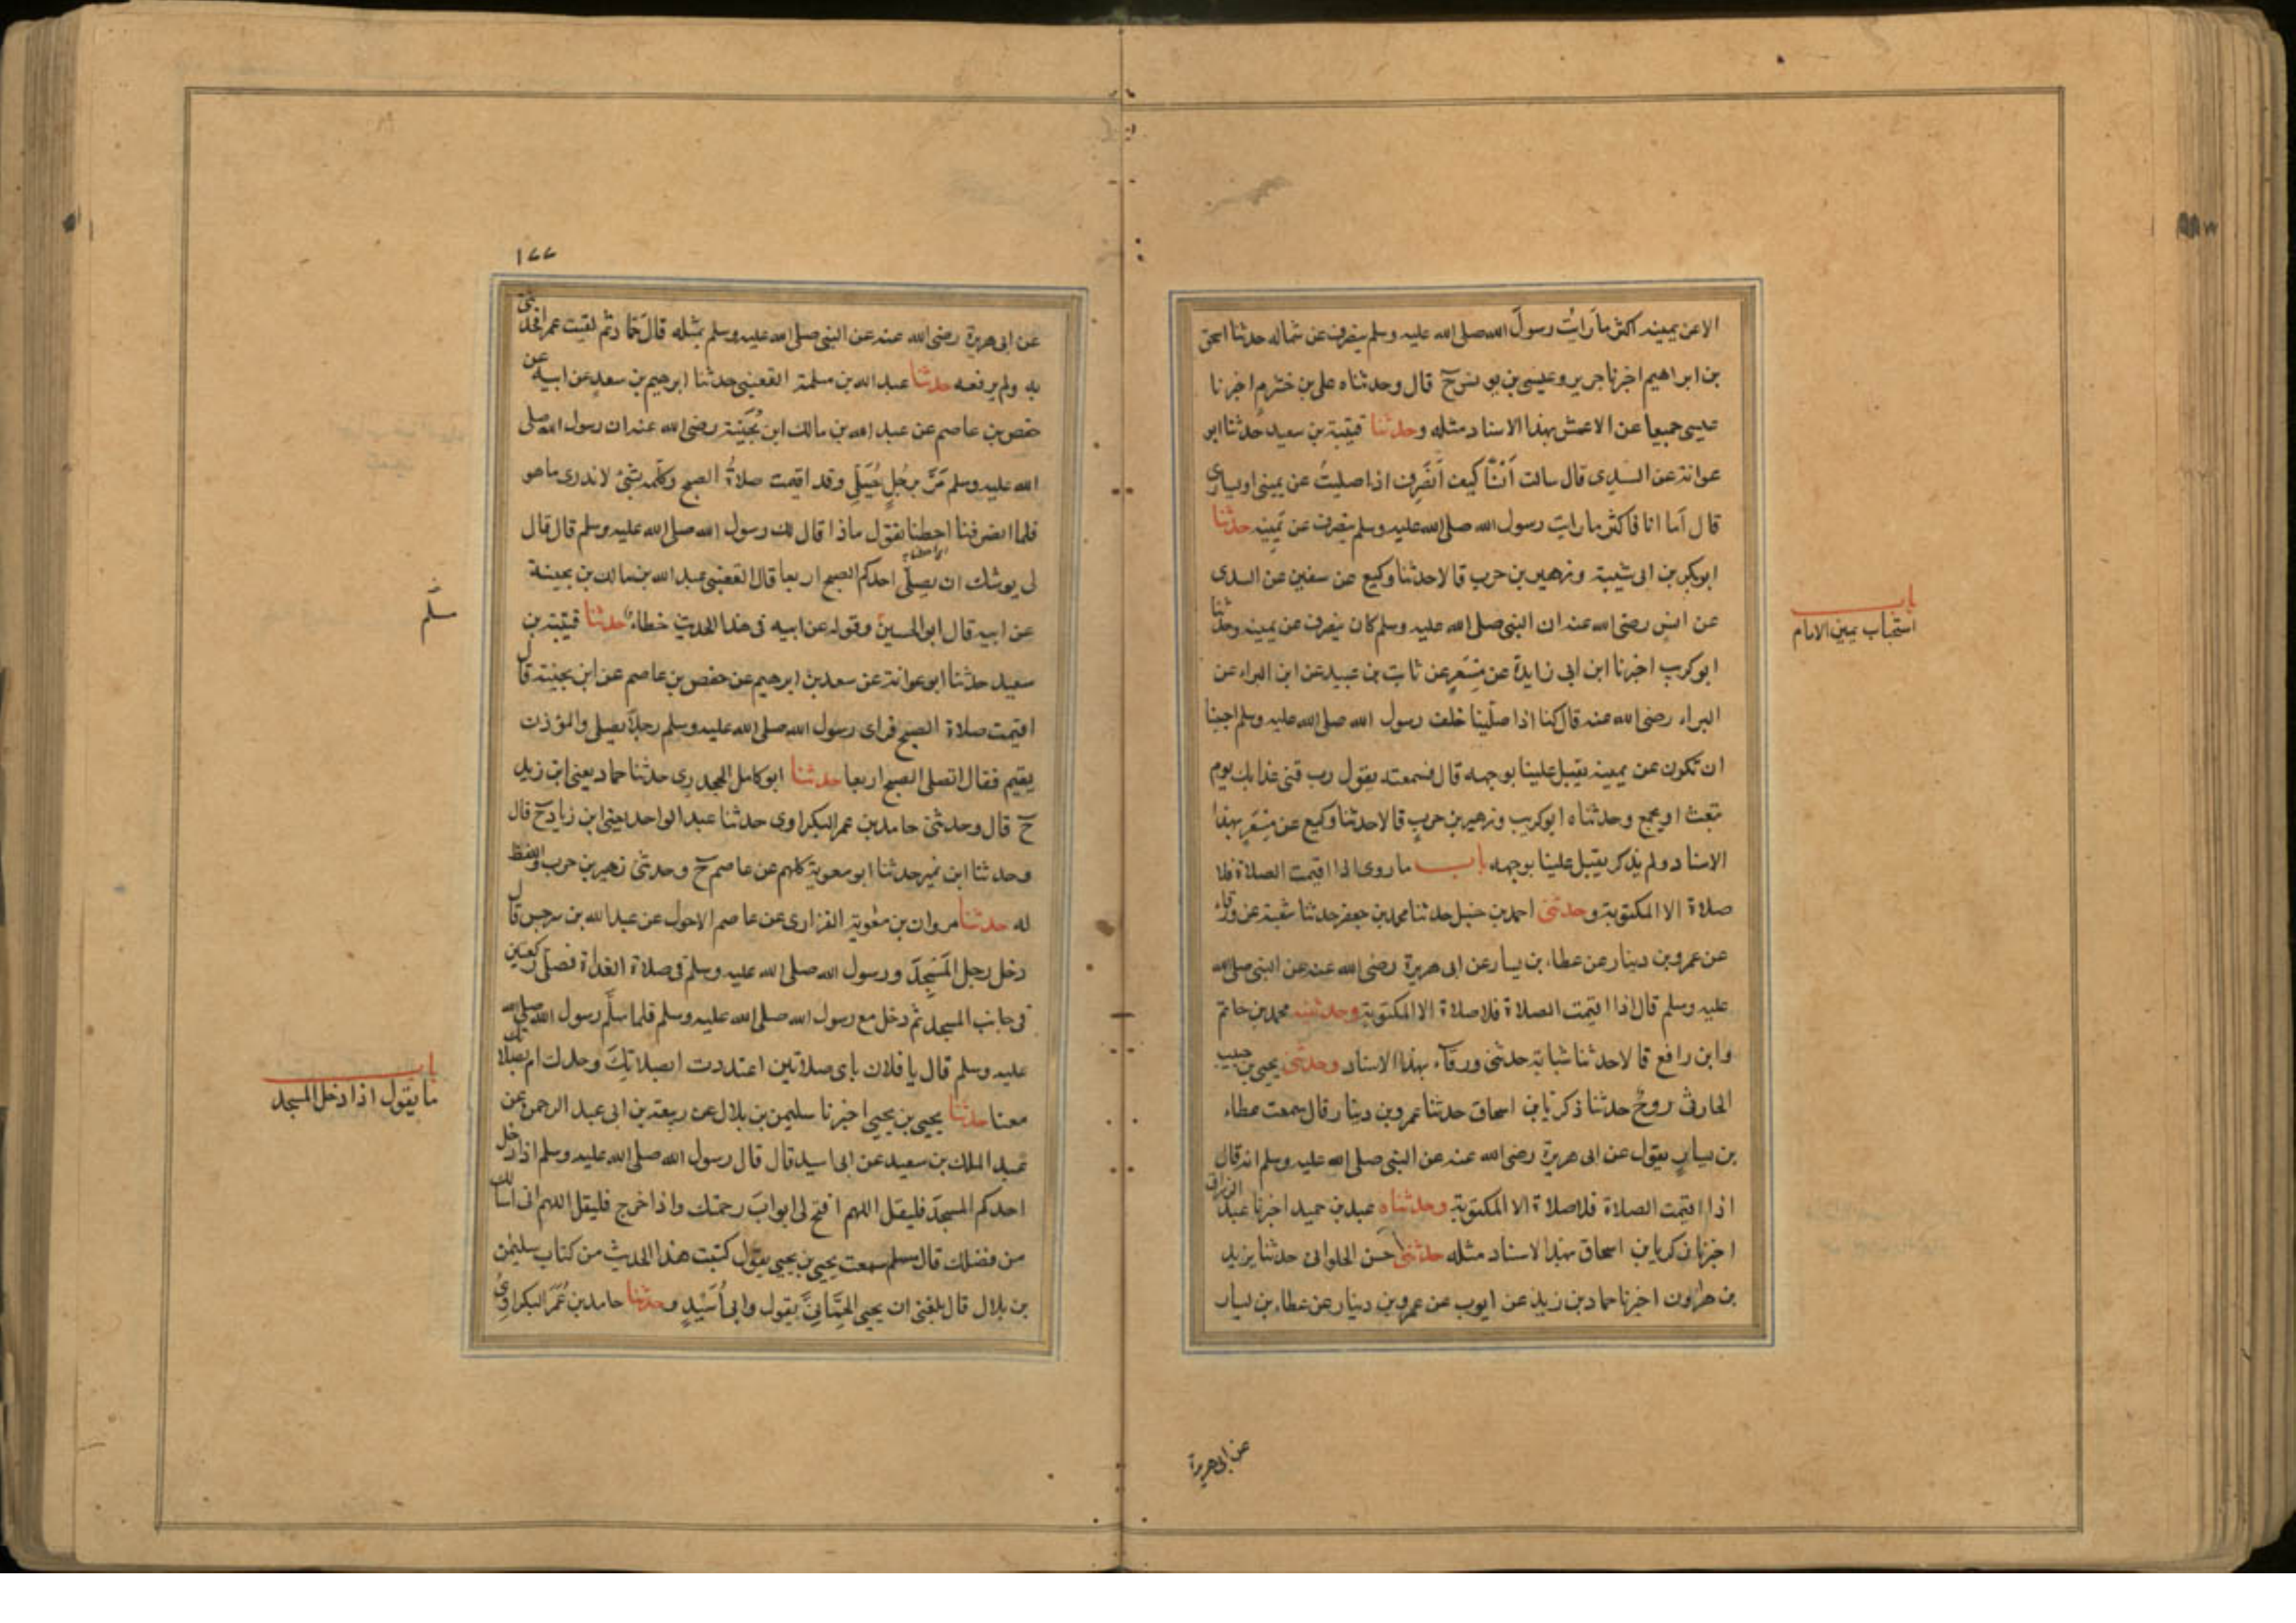 الا عن يمينه اكثر ما رايت رسول الله صلى الله عليه وسلم ينصرف عن شماله حدثنا اسحق
بن ابراهيم اخبرنا جرير وعيسى بن يونس ح قال وحدثناه على بن خشرم اخبرنا
عيسى جميعا عن الاعمش بهذا الاسناد مثله وحدثنا قتيبة بن سعيد حدثنا ابو
عوانة عن السدى قال سالت أنسًا كيف أنصرف اذا صليتُ عن يمينى او يسارى
قال أما انا فاكثر ما رايت رسول الله صلى الله عليه وسلم ينصرف عن يمينه حدثنا
ابو بكر بن ابى شيبة وزهير بن حرب قالا حدثنا وكيع عن سفين عن السدى
عن انس رضى الله عنه ان النبى صلى الله عليه وسلم كان ينصرف عن يمينه وحدثنا
باب
استحباب يمين الامام
ابو كريب اخبرنا ابن ابى زايدة عن مِسْعَرٍ عن ثابت بن عبيد عن ابن البراء عن
البراء رضى الله عنه قال كنا اذا صلّينا خلف رسول الله صلى الله عليه وسلم احببنا
ان نكون عن يمينه يقبل علينا بوجهه قال فسمعته يقول رب قنى عذابك يوم
تبعث او تجمع وحدثناه ابو كريب وزهير بن حرب قالا حدثنا وكيع عن مِسْعَرٍ بهذا
الاسناد ولم يذكر يقبل علينا بوجهه باب ما روى اذا اقيمت الصلاة فلا
صلاة الا المكتوبة وحدثنى احمد بن حنبل حدثنا محمد بن جعفر حدثنا شعبة عن ورقاء
عن عمرو بن دينار عن عطاء بن يسار عن ابى هريرة رضى الله عنه عن النبى صلى الله
عليه وسلم قال اذا اقيمت الصلاة فلا صلاة الا المكتوبة وحدثنيه محمد بن حاتم
وابن رافع قالا حدثنا شبابة حدثنى ورقاء بهذا الاسناد وحدثنى يحيى بن حبيب
الحارثى روح حدثنا زكريا بن اسحاق حدثنا عمرو بن دينار قال سمعت عطاء
بن يسار يقول عن ابى هريرة رضى الله عنه عن النبى صلى الله عليه وسلم انه قال
اذا اقيمت الصلاة فلا صلاة الا المكتوبة وحدثناه عبد بن حميد اخبرنا عبد الرزاق
اخبرنا زكريا بن اسحاق بهذا الاسناد مثله حدثنى حسن الحلوانى حدثنا يزيد
بن هارون اخبرنا حماد بن زيد عن ايوب عن عمرو بن دينار عن عطاء بن يسار
عن ابى هريرة
١٧٧
عن ابى هريرة رضى الله عنه عن النبى صلى الله عليه وسلم بمثله قال حماد ثم لقيت عمرا فحدثنى
به ولم يرفعه حدثنا عبد الله بن مسلمة القعنبى حدثنا ابرهيم بن سعد عن ابيه عن
حفص بن عاصم عن عبد الله بن مالك ابن بُحَيْنَة رضى الله عنه ان رسول الله صلى
الله عليه وسلم مَرَّ برجُلٍ يُصَلّى وقد اقيمت صلاةُ الصبح وكلّمه بشئ لا ندرى ما هو
فلما انصرفنا احطنا نقول ماذا قال لك رسول الله صلى الله عليه وسلم قال قال
لى يوشك ان يصلّى احدكم الصبح اربعا قال القعنبى عبد الله بن مالك بن بحينة
عن ابيه قال ابو الحسين وقوله عن ابيه فى هذا الحديث خطاء حدثنا قتيبة بن
سلم
سعيد حدثنا ابو عوانة عن سعد بن ابرهيم عن حفص بن عاصم عن ابن بحينة قال
اقيمت صلاة الصبح فراى رسول الله صلى الله عليه وسلم رجلًا يصلى والمؤذن
يقيم فقال اتصلى الصبح اربعا حدثنا ابو كامل الجحدرى حدثنا حماد يعنى ابن زيد
ح قال وحدثنى حامد بن عمر البكراوى حدثنا عبد الواحد يعنى ابن زياد ح قال
وحدثنا ابن نمير حدثنا ابو معوية كلهم عن عاصم ح وحدثنى زهير بن حرب واللفظ
له حدثنا مروان بن معوية الفزارى عن عاصم الاحول عن عبد الله بن سرجس قال
دخل رجل المَسْجِدَ ورسول الله صلى الله عليه وسلم فى صلاة الغداة فصلى ركعتين
فى جانب المسجد ثم دخل مع رسول الله صلى الله عليه وسلم فلما سلّم رسول الله صلى الله
عليه وسلم قال يا فلان باى صلاتين اعتددت ابصلاتِكَ وحدك ام بصلاتك
معنا حدثنا يحيى بن يحيى اخبرنا سليمن بن بلال عن ربيعة بن ابى عبد الرحمن عن
باب
ما يقول اذا دخل المسجد
عبد الملك بن سعيد عن ابى اسيد قال قال رسول الله صلى الله عليه وسلم اذا دخل
احدكم المسجدَ فليقل اللهم افتح لى ابوابَ رحمتك واذا خرج فليقل اللهم انى اسالك
من فضلك قال مسلم سمعت يحيى بن يحيى يقول كتبت هذا الحديث من كتاب سليمن
بن بلال قال بلغنى ان يحيى الحِمَّانِىَّ يقول وابى أُسَيْدٍ وحدثنا حامد بن عُمَرَ البكراوِىُّ